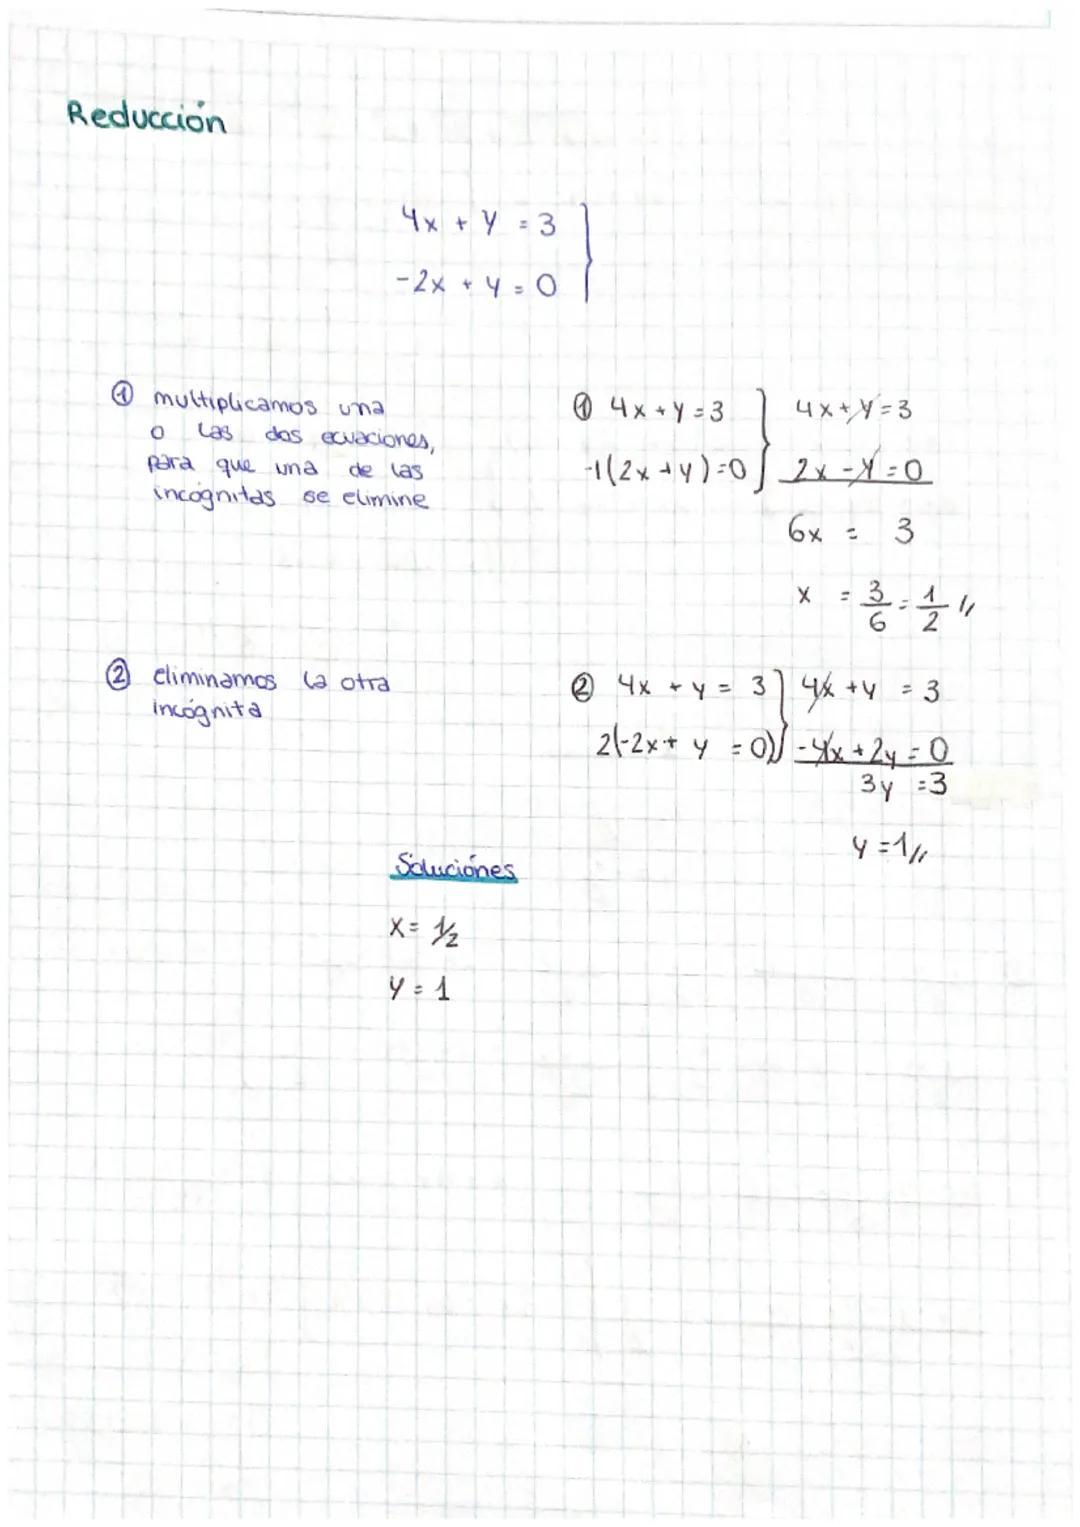 Reducción
4x + y = 3
-2x + y = 0
① multiplicamos una
o las dos ecuaciones,
para que una de las
incógnitas se elimine
① 4x + y = 3 4x + y = 3
-1(2x + y) = 0 2x - y = 0
6x = 3
x = 3/6 = 1/2 //
② eliminamos la otra
incógnita
② 4x + y = 3 4x + y = 3
2(-2x + y = 0) -4x + 2y = 0
3y = 3
y = 1 //
Soluciónes
x = 1/2
y = 1